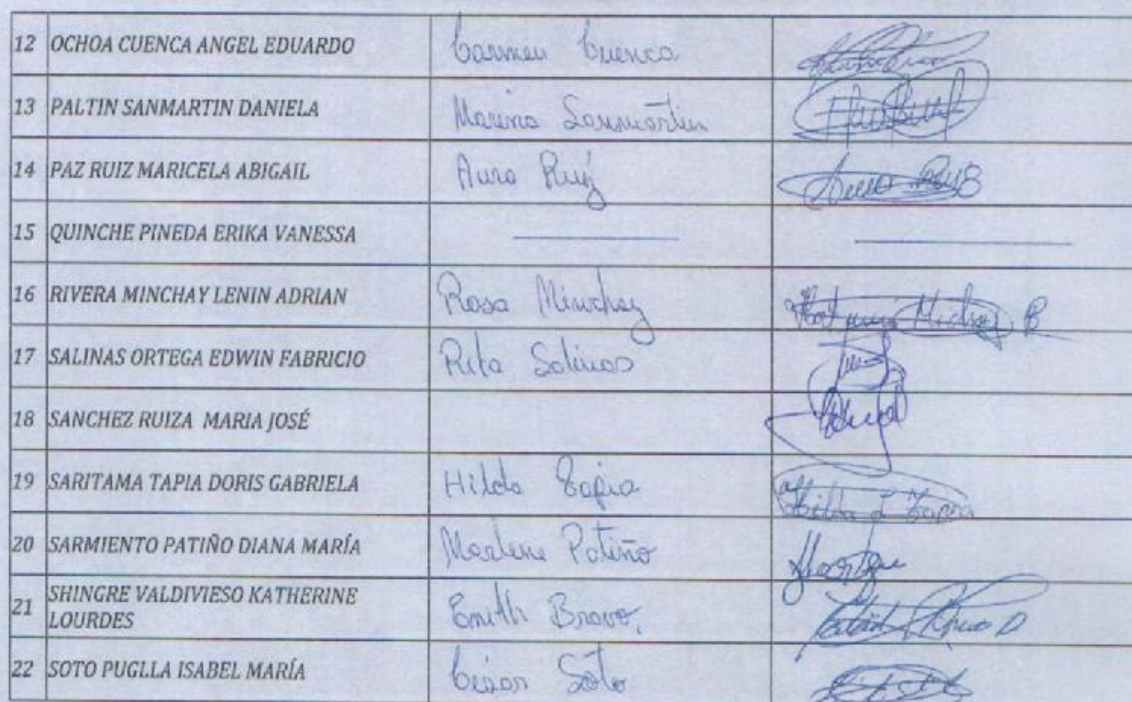 12 OCHOA CUENCA ANGEL EDUARDO Carmen Cuenca
13 PALTIN SANMARTIN DANIELA Marina Sanmartin
14 PAZ RUIZ MARICELA ABIGAIL Aura Ruiz
15 QUINCHE PINEDA ERIKA VANESSA
16 RIVERA MINCHAY LENIN ADRIAN Rosa Minchay
17 SALINAS ORTEGA EDWIN FABRICIO Rita Salinas
18 SANCHEZ RUIZA MARIA JOSÉ
19 SARITAMA TAPIA DORIS GABRIELA Hilda Tapia Hilda L Tapia
20 SARMIENTO PATIÑO DIANA MARÍA Marlene Patiño
21 SHINGRE VALDIVIESO KATHERINE
LOURDES Bravo,
22 SOTO PUGLLA ISABEL MARÍA César Soto